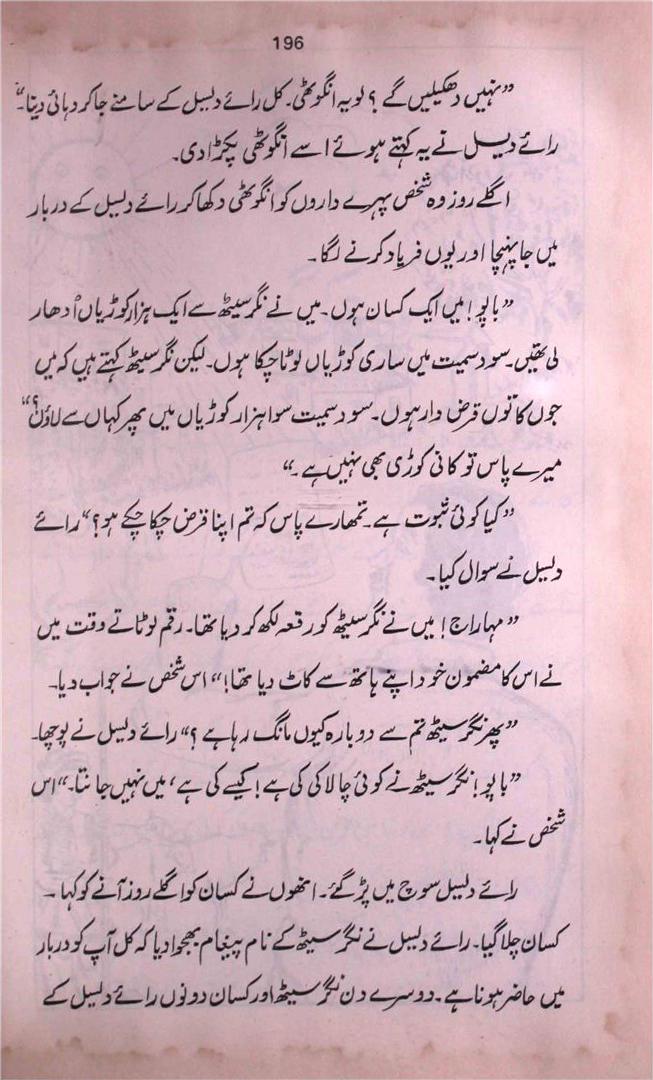 196
”نہیں دھکیلیں گے؟ لو یہ انگوٹھی۔ کل رائے دلیل کے سامنے جا کر دہائی دینا۔“
رائے دلیل نے یہ کہتے ہوئے اسے انگوٹھی پکڑا دی۔
اگلے روز وہ شخص پہرے داروں کو انگوٹھی دکھا کر رائے دلیل کے دربار
میں جا پہنچا اور یوں فریاد کرنے لگا۔
”باپو! میں ایک کسان ہوں۔ میں نے نگر سیٹھ سے ایک ہزار کوڑیاں اُدھار
لی تھیں۔ سود سمیت میں ساری کوڑیاں لوٹا چکا ہوں۔ لیکن نگر سیٹھ کہتے ہیں کہ میں
جوں کا توں قرض دار ہوں۔ سود سمیت سوا ہزار کوڑیاں میں پھر کہاں سے لاؤں؟“
میرے پاس تو کانی کوڑی بھی نہیں ہے۔“
”کیا کوئی ثبوت ہے۔ تمھارے پاس کہ تم اپنا قرض چکا چکے ہو؟“ رائے
دلیل نے سوال کیا۔
”مہاراج! میں نے نگر سیٹھ کو رقعہ لکھ کر دیا تھا۔ رقم لوٹاتے وقت میں
نے اس کا مضمون خود اپنے ہاتھ سے کاٹ دیا تھا!“ اس شخص نے جواب دیا۔
”پھر نگر سیٹھ تم سے دوبارہ کیوں مانگ رہا ہے؟“ رائے دلیل نے پوچھا۔
”باپو! نگر سیٹھ نے کوئی چالاکی کی ہے! کیسے کی ہے، میں نہیں جانتا۔“ اس
شخص نے کہا۔
رائے دلیل سوچ میں پڑ گئے۔ انھوں نے کسان کو اگلے روز آنے کو کہا۔
کسان چلا گیا۔ رائے دلیل نے نگر سیٹھ کے نام پیغام بھجوا دیا کہ کل آپ کو دربار
میں حاضر ہونا ہے۔ دوسرے دن نگر سیٹھ اور کسان دونوں رائے دلیل کے